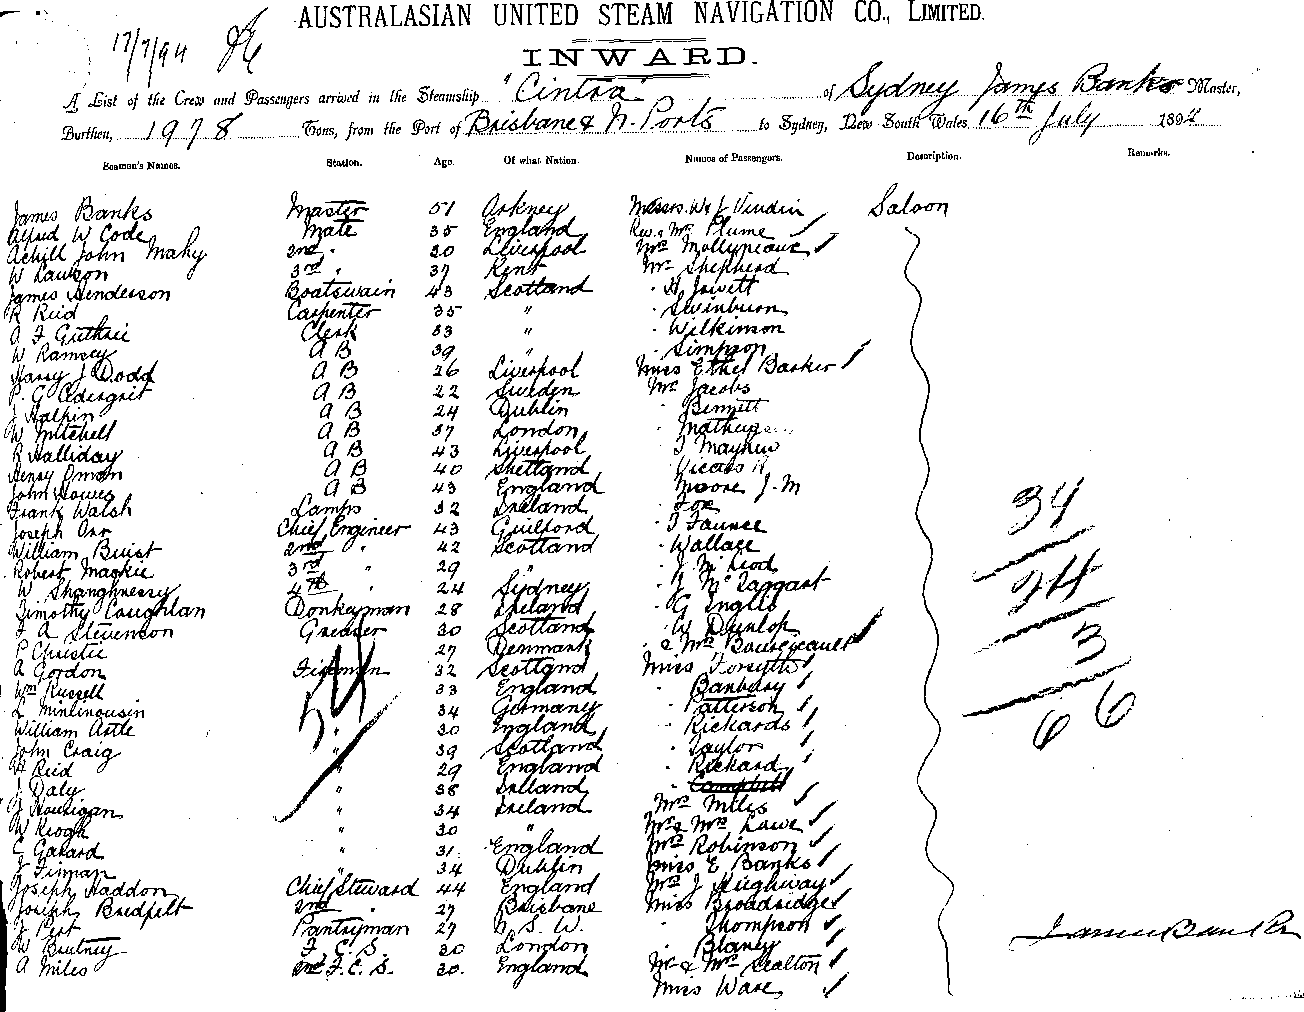 AUSTRALASIAN UNITED STEAM NAVIGATION CO., LIMITED.
17/7/94
INWARD.
A List of the Crew and Passengers arrived in the Steamship "Cintra" of Sydney James Banks Master,
Burthen, 1978 Tons, from the Port of Brisbane & N. Ports to Sydney, New South Wales 16th July 1894
Seamen's Names. Station. Age. Of what Nation. Names of Passengers. Description. Remarks.
James Banks Master 51 Orkney Messrs. W & J Vindin Saloon
Alfred W Code Mate 35 England Rev. & Mrs Plume
Achill John Mahy 2nd " 30 Liverpool Mrs Mollyneaux
W Lawson 3rd " 37 Kent Mr Shepherd
James Henderson Boatswain 43 Scotland " H Jowett
R Reid Carpenter 35 " " Swinburn
A F Guthrie Clerk 33 " " Wilkinson
W Ramsey A B 39 " " Simpson
Harry J Dodd A B 26 Liverpool Miss Ethel Barker
P. G A B 22 Sweden Mr Jacobs
J Halpin A B 24 Dublin " Bennett
W Mitchell A B 37 London "
R Halliday A B 43 Liverpool " T Mayhew
Henry Oman A B 40 Shetland "
John Howes A B 43 England " Moore J. M
Frank Walsh Lamps 32 Ireland " Fox
Joseph Orr Chief Engineer 43 Guilford " T Faunce
William Buist 2nd " 42 Scotland " Wallace
Robert Mackie 3rd " 29 " " J McLeod
W. Shanghnessy 4th " 24 Sydney " J McTaggart
Timothy Coughlan Donkeyman 28 Ireland " G Inglis
F A Stevenson Greaser 30 Scotland " W Dunlop
P Christie 27 Denmark " & Mrs
A Gordon Fireman 32 Scotland Miss Forsyth
Wm Russell " 33 England " Banbery
L " 34 Germany " Patterson
William Astle " 30 England " Rickards
John Craig " 39 Scotland " Taylor
H Reid " 29 England " Rickard
J Daly " 38 Ireland " Campbell
J Hourigan " 34 Ireland Mrs Miles
W Keogh " 30 " Mr & Mrs Lawe
C Garard " 31 England Mrs Robinson
J Finnan " 34 Dublin Miss E Banks
Joseph Haddon Chief Steward 44 England Mr J Hughway
Joseph Bredfelt 2nd " 27 Brisbane Miss Broadridge
J Pert Pantryman 27 N. S. W. " Thompson
W Beutney F. C. S. 30 London " Blaney
A Miles 2nd F. C. S. 30 England Mr & Mrs Scalton
Miss Ware
54
34
24
3
66
James Banks